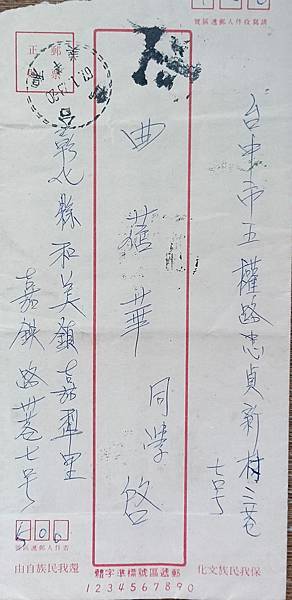 請寫收件人郵遞區號
台中市五權路忠貞新村三巷
七号
曲蓓華 同學 啓
正貼郵票
彰化縣和美鎮嘉犁里
嘉鉄路巷七号
500
寄件人郵遞區號
保我民族文化
郵遞區號標準字體
1234567890
還我民族自由